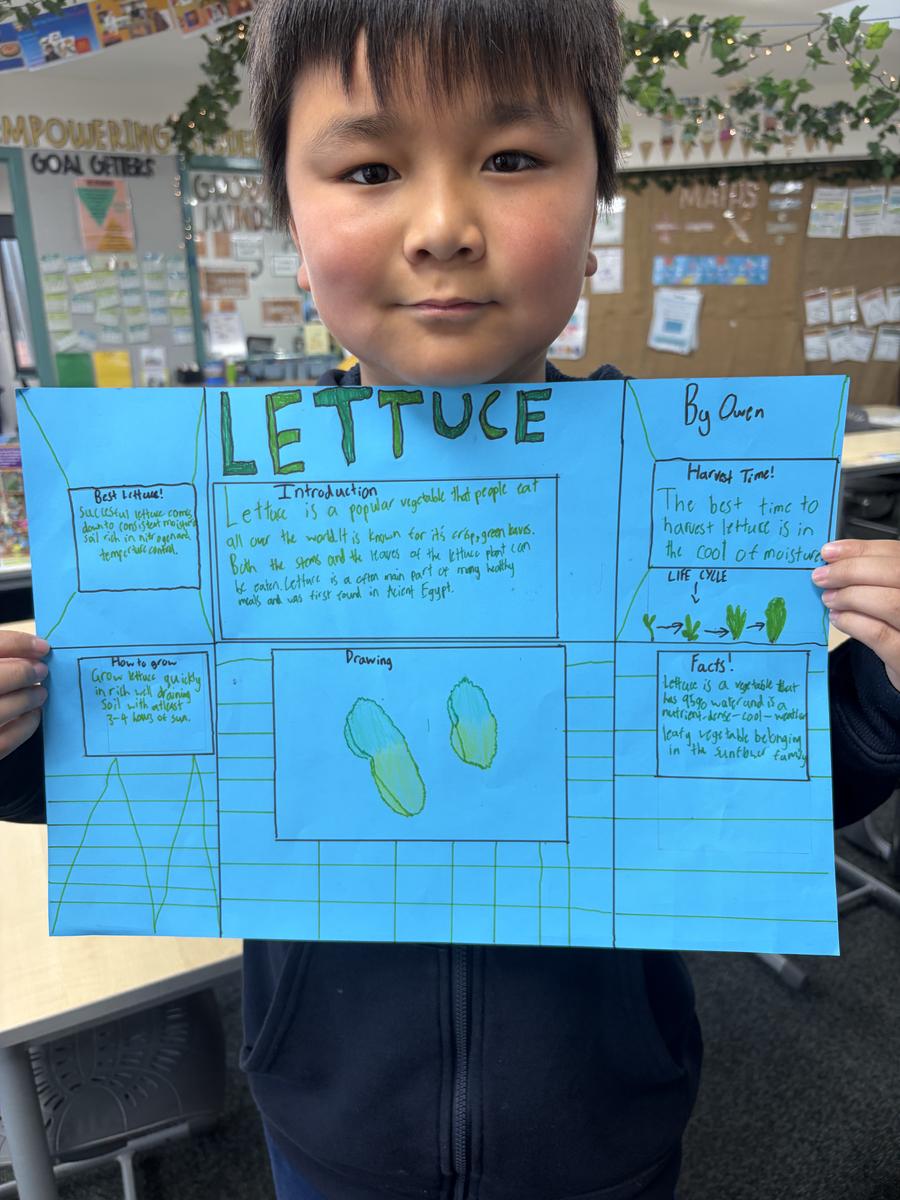 EMPOWERING
GOAL GETTERS
MATHS
LETTUCE
By Owen
Best Lettuce!
Succesful lettuce coms
down to consistent moisture
soil rich in nitrogen and
temperture control.
Introduction
Lettuce is a popular vegetable that people eat
all over the world. It is known for it's crisp, green leaves.
Both the stems and the leaves of the lettuce plant can
be eaten. Lettuce is a often main part of many healthy
meals and was first found in Acient Egypt.
Harvest Time!
The best time to
harvest lettuce is in
the cool of moisture
LIFE CYCLE
How to grow
Grow lettuce quickly
in rich well draining
Soil with atleast
3-4 hours of sun.
Drawing
Facts!
Lettuce is a vegetable that
has 95% water and is a
nutrient-dense-cool-weather
leafy vegetable belonging
in the sunflower family